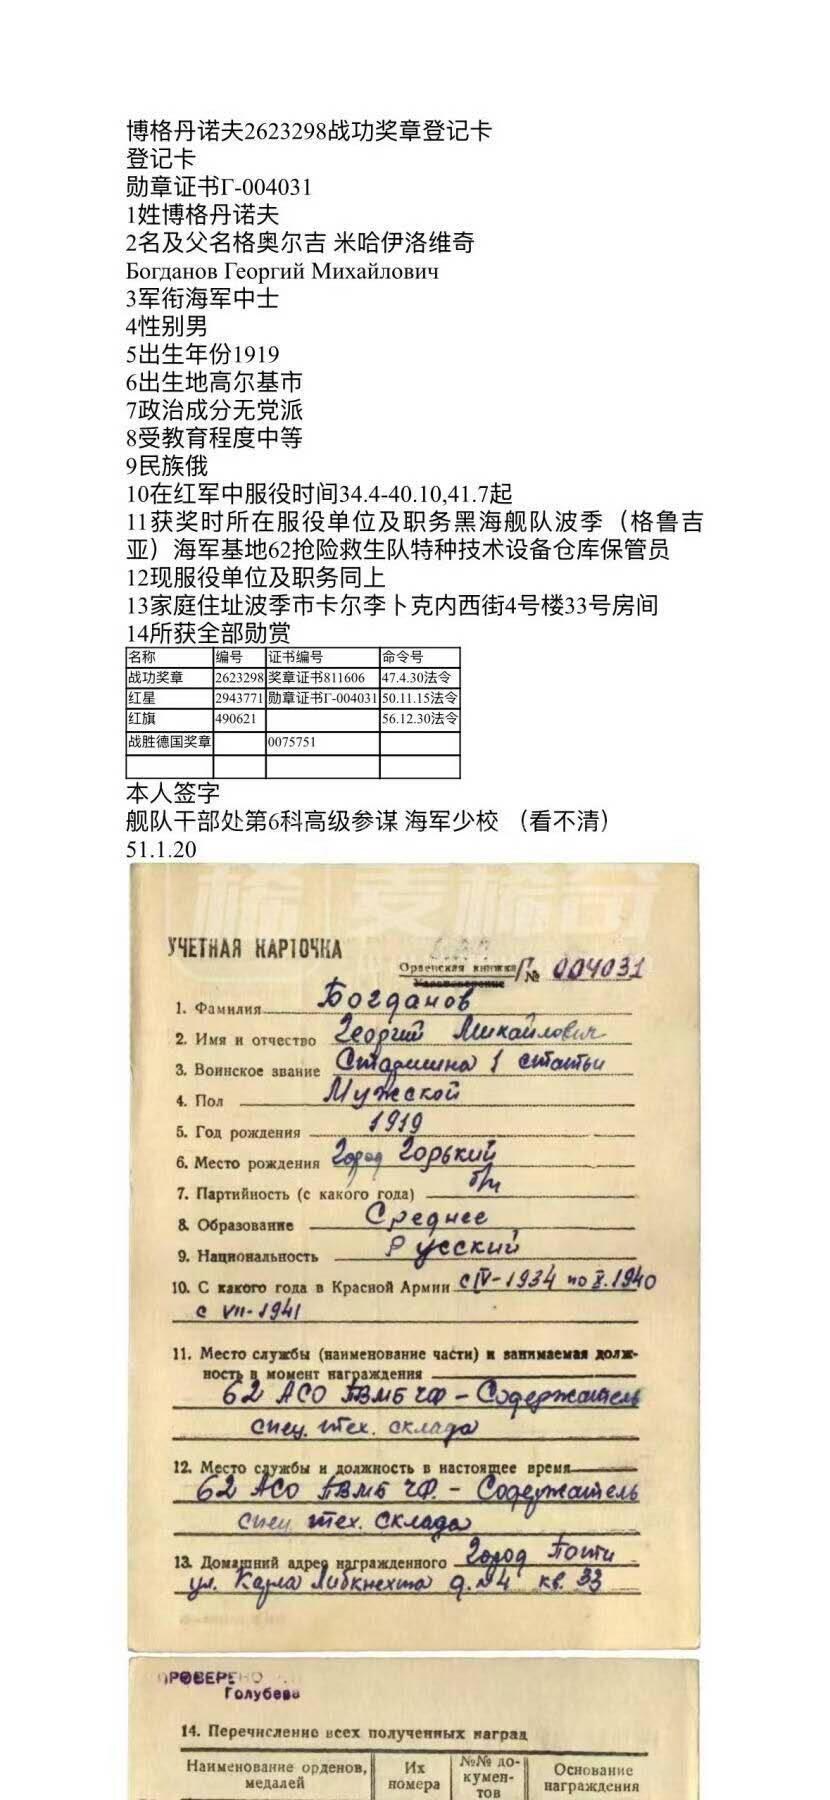 博格丹诺夫2623298战功奖章登记卡
登记卡
勋章证书Г-004031
1姓博格丹诺夫
2名及父名格奥尔吉 米哈伊洛维奇
Богданов Георгий Михайлович
3军衔海军中士
4性别男
5出生年份1919
6出生地高尔基市
7政治成分无党派
8受教育程度中等
9民族俄
10在红军中服役时间34.4-40.10,41.7起
11获奖时所在服役单位及职务黑海舰队波季（格鲁吉
亚）海军基地62抢险救生队特种技术设备仓库保管员
12现服役单位及职务同上
13家庭住址波季市卡尔李卜克内西街4号楼33号房间
14所获全部勋赏
名称 编号 证书编号 命令号
战功奖章 2623298 奖章证书811606 47.4.30法令
红星 2943771 勋章证书Г-004031 50.11.15法令
红旗 490621 56.12.30法令
战胜德国奖章 0075751
本人签字
舰队干部处第6科高级参谋 海军少校 （看不清）
51.1.20
УЧЕТНАЯ КАРТОЧКА
Орденская книжка Г № 004031
Удостоверение
1. Фамилия Богданов
2. Имя и отчество Георгий Михайлович
3. Воинское звание Старшина 1 статьи
4. Пол Мужской
5. Год рождения 1919
6. Место рождения город Горький
7. Партийность (с какого года) б/п
8. Образование Среднее
9. Национальность Русский
10. С какого года в Красной Армии с IV-1934 по X.1940
с VII-1941
11. Место службы (наименование части) и занимаемая долж-
ность в момент награждения
62 АСО ПВМБ ЧФ - Содержатель
спец. тех. склада
12. Место службы и должность в настоящее время
62 АСО ПВМБ ЧФ. - Содержатель
спец. тех. склада
13. Домашний адрес награжденного город Поти
ул. Карла Либкнехта д. №4 кв. 33
ПРОВЕРЕНО
Голубева
14. Перечисление всех полученных наград
Наименование орденов, медалей
Их номера
№№ до-кумен-тов
Основание награждения